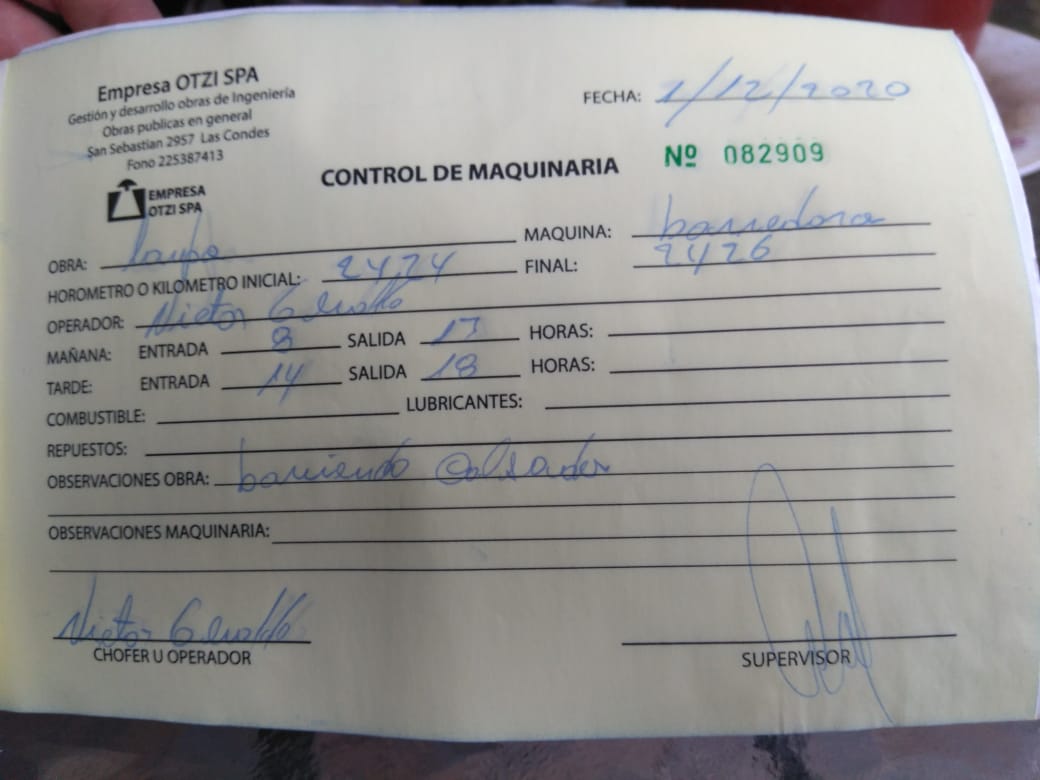 Empresa OTZI SPA
Gestión y desarrollo obras de Ingeniería
Obras publicas en general
San Sebastian 2957 Las Condes
Fono 225387413
EMPRESA
OTZI SPA
FECHA: 1/12/2020
Nº 082909
CONTROL DE MAQUINARIA
OBRA:
MAQUINA: barredora
HOROMETRO O KILOMETRO INICIAL: 2424 FINAL: 2426
OPERADOR: Victor
MAÑANA: ENTRADA 8 SALIDA 13 HORAS:
TARDE: ENTRADA 14 SALIDA 18 HORAS:
COMBUSTIBLE: LUBRICANTES:
REPUESTOS:
OBSERVACIONES OBRA: barriendo
OBSERVACIONES MAQUINARIA:
Victor
CHOFER U OPERADOR
SUPERVISOR